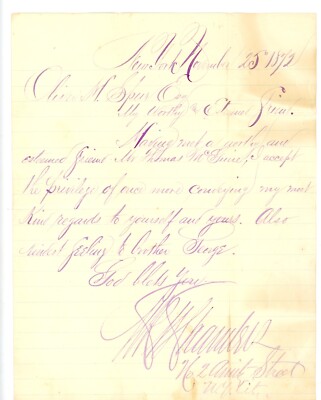 New York November 25th 1873
Oliver M. Spier Esq
My worthy & Esteemed Friend
Having met a worthy and
esteemed friend Mr Thomas I accept
the privilege of once more conveying my most
kind regards to yourself and yours. Also
kindest feelings to brother George.
God Bless You
2 Street
N.Y. City